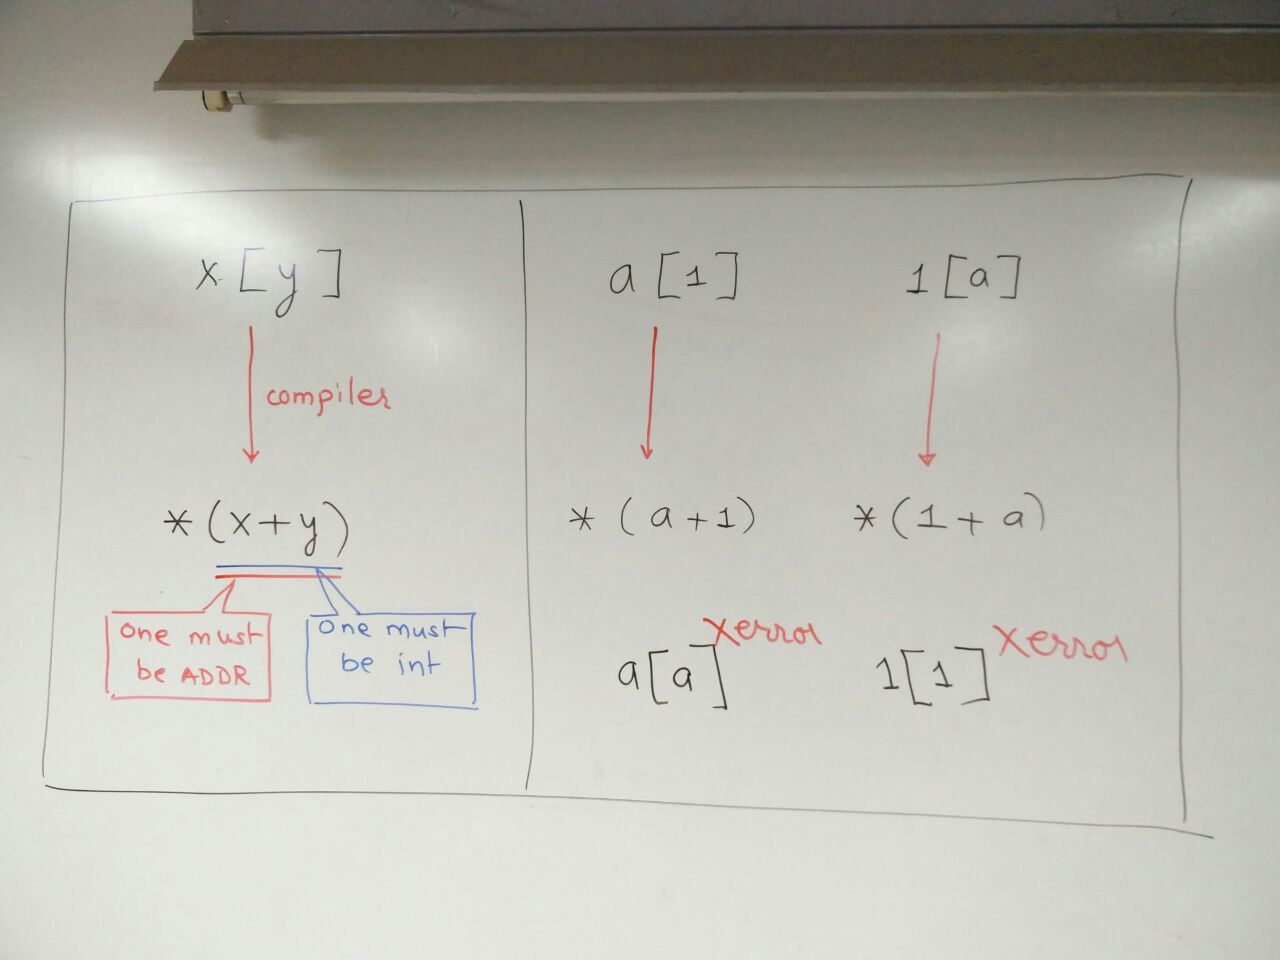 x[y]
compiler
*(x+y)
One must
be ADDR
One must
be int
a[1]
1[a]
*(a+1)
*(1+a)
a[a] Xerror
1[1] Xerror